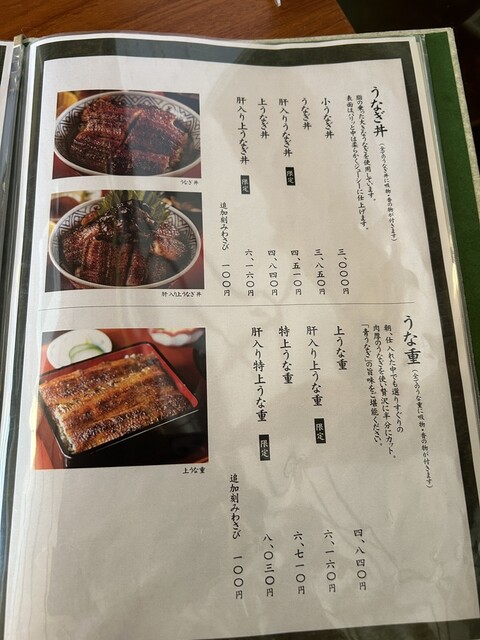 うなぎ丼 (全てのうなぎ丼に吸物・香の物が付きます)
脂の乗った大きなうなぎを使用しています。
表面はパリッと中は柔らかくジューシーに仕上げます。
小うなぎ丼 三、〇〇〇円
うなぎ丼 三、八五〇円
肝入りうなぎ丼 限定 四、五一〇円
上うなぎ丼 四、八四〇円
肝入り上うなぎ丼 限定 六、一六〇円
追加刻みわさび 一〇〇円
うなぎ丼
肝入り上うなぎ丼
うな重 (全てのうな重に吸物・香の物が付きます)
朝、仕入れた中でも選りすぐりの
肉厚のうなぎを使い贅沢に半分にカット。
「青うなぎ」の旨味をご堪能ください。
上うな重 四、八四〇円
肝入り上うな重 限定 六、一六〇円
特上うな重 六、七一〇円
肝入り特上うな重 限定 八、〇三〇円
追加刻みわさび 一〇〇円
上うな重